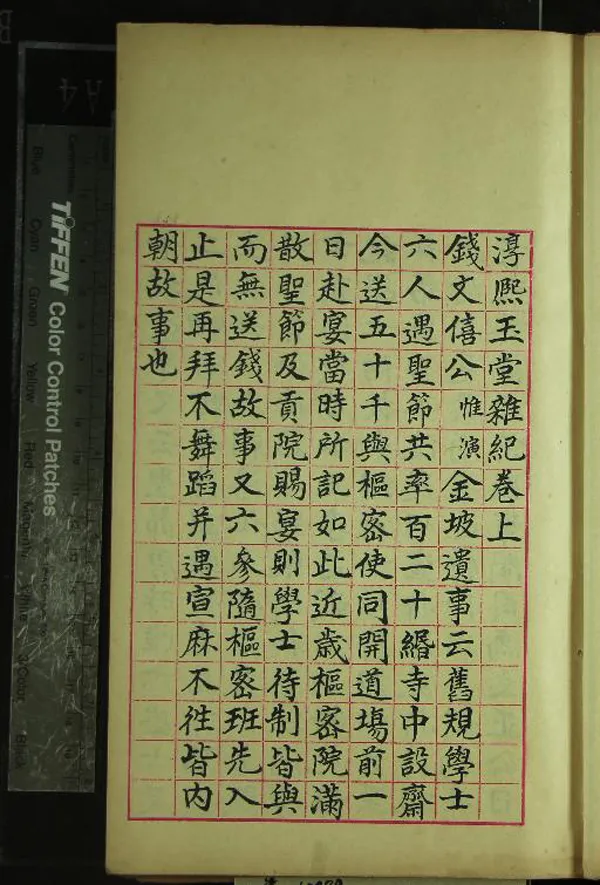 淳熙玉堂雜紀卷上
錢文僖公惟演金坡遺事云舊規學士
六人遇聖節共率百二十緡寺中設齋
今送五十千與樞密使同開道場前一
日赴宴當時所記如此近歲樞密院滿
散聖節及貢院賜宴則學士待制皆與
而無送錢故事又六參隨樞密班先入
止是再拜不舞蹈并遇宣麻不徃皆內
朝故事也
TIFFEN Color Control Patches
Blue
Cyan
Green
Yellow
Red
Magenta
White
3/Color
Black
A4